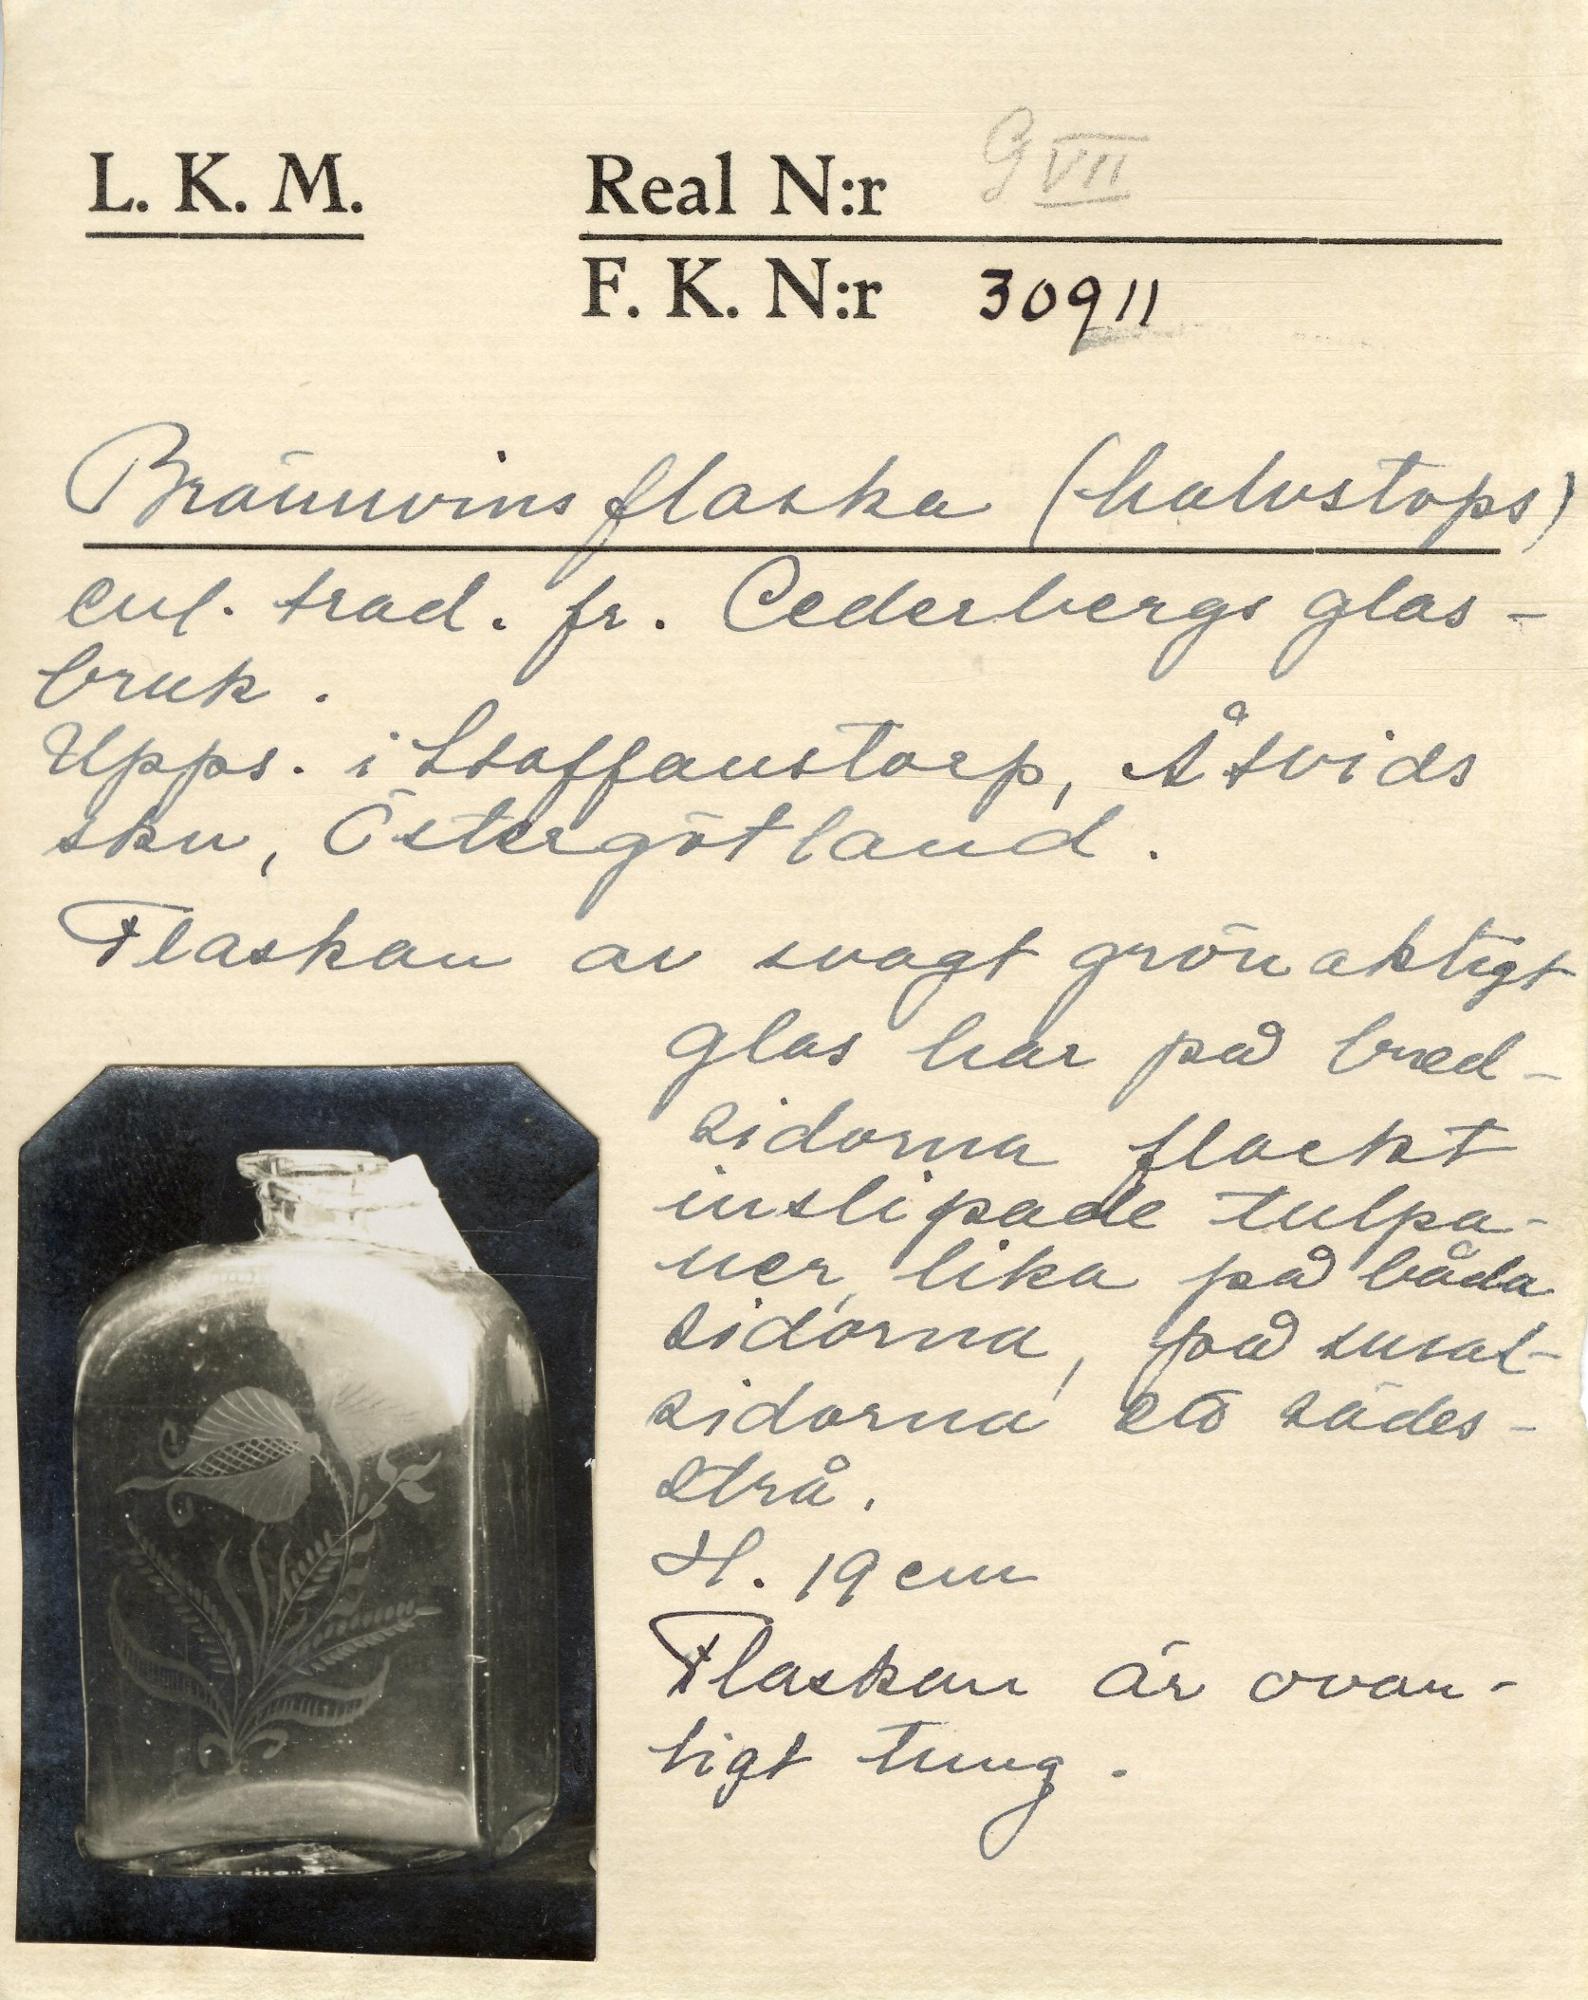 L. K. M.
Real N:r G VII
F. K. N:r 30911
Brännvinsflaska (halvstops)
enl. trad. fr. Cederbergs glas-
bruk.
Upps. i Staffanstorp, Åtvids
skn, Östergötland.
Flaskan av svagt grönaktigt
glas har på bred-
sidorna flackt
inslipade tulpa-
ner, lika på båda
sidorna, på smal-
sidorna ett sädes-
strå.
H. 19 cm
Flaskan är ovan-
ligt tung.